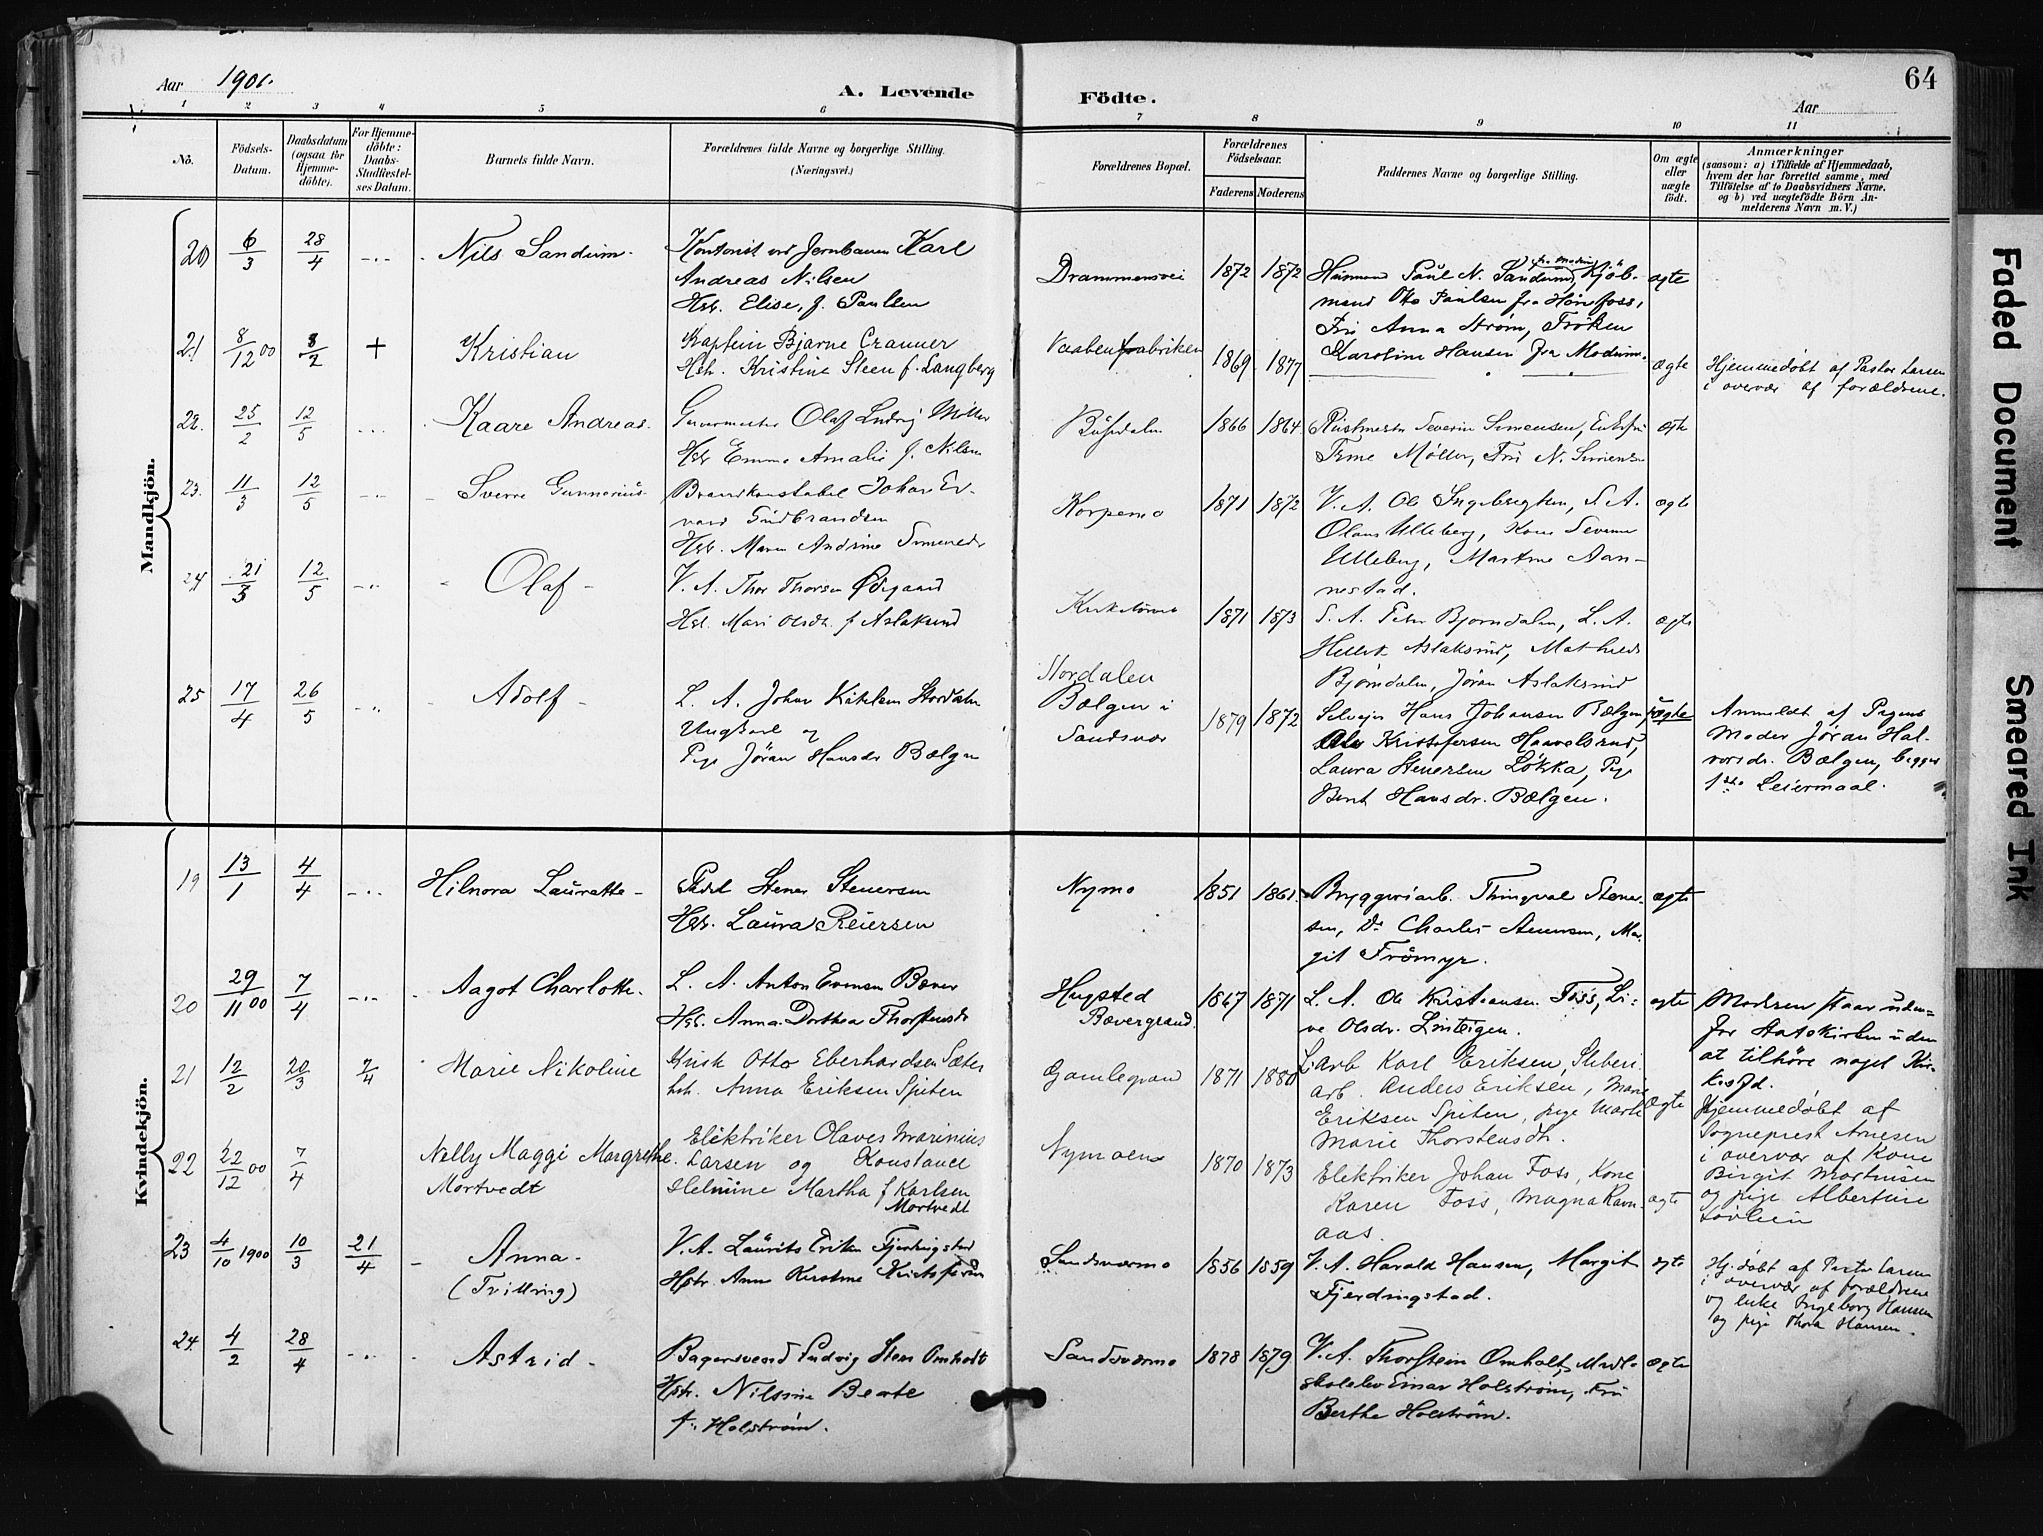 Aar 1901.
A. Levende
Födte.
Aar
64
1 2 3 4 5 6 7 8 9 10 11
No.
Födsels-
Datum.
Daabsdatum
(ogsaa for
Hjemme-
döbte).
For Hjemme-
döbte:
Daabs-
Stadfæstel-
ses Datum.
Barnets fulde Navn.
Forældrenes fulde Navne og borgerlige Stilling.
(Næringsvei.)
Forældrenes Bopæl.
Forældrenes
Födselsaar.
Faderens Moderens
Faddernes Navne og borgerlige Stilling.
Om ægte
eller
uægte
födt.
Anmærkninger
(saasom: a) i Tilfælde af Hjemmedaab,
hvem der har forrettet samme, med
Tilföielse af to Daabsvidners Navne.
og b) ved uægtefödte Börn An-
melderens Navn m. V.)
Mandkjön.
20 6/3 28/4 Nils Sandum
Kontorist ved Jernbanen Karl
Andreas Nilsen
Hstr. Elise, f. Paulsen
Drammensvei 1872 1872
Paul N. Sandum, fra Modum Kjöb-
mand Otto Paulsen fra Hönefoss,
Fru Anna Ström, Fröken
Karoline Hansen fra Modum
ægte
21 8/12 00 8/2 + Kristian
Kaptein Bjarne Cranner
Hstr. Kristine Steen f. Langberg
Vaabenfabriken 1869 1877 ægte
Hjemmedøbt af Pastor Larsen
i overvær af forældrene.
22. 25/2 12/5 Kaare Andreas
Olaf Ludvig Möller
Hstr Emma Amalie f. Nilsen
1866 1864
Severin Simensen,
Møller, Fru N. Simensen
ægte
23. 11/3 12/5 Sverre Gunnerius
Brandkonstabel Johan Ed-
vard Gudbrandsen
Hstr. Maren Andrine Simensdr
Korpemo 1871 1872
V. A. Ole Ingebrigtsen, S. A.
Olaus Ulleberg, Kone Severine
Ulleberg, Martine Aan-
nestad.
ægte
24 21/3 12/5 Olaf
V. A. Thor Thorsen Ødegaard
Hstr. Mari Olsdtr. f Aslaksrud
1871 1873
S. A. Peter Bjørndalen, L. A.
Aslaksrud, Mathilde
Bjørndalen, Jøran Aslaksrud
ægte
25 17/4 26/5 Adolf
L. A. Johan Stordalen
Ungkarl og
Pige Jöran Hansdr Bælgen
Stordalen
Bælgen i
Sandsvær
1879 1872
Selveier Hans Johansen Bælgen,
Ole Kristofersen Haavelsrud,
Laura Stenersen Løkka, Pige
Berit Hansdr. Bælgen.
uægte
Anmeldt af Pigens
Moder Jøran Hal-
vorsdr. Bælgen, begges
1ste Leiermaal.
Kvindekjön.
19 13/1 4/4 Hilnora Laurette
Stener Stenersen
Hstr. Laura Reiersen
Nymo 1851 1861
Bryggeriarb. Thingval Stener-
sen, Do Charles Stenersen, Mar-
git Frömyr.
ægte
20 29/11 00 7/4 Aagot Charlotte
L. A. Anton Evensen Bæver
Hstr. Anna Dorthea Thorstensdr
Hugsted
Bævergrend. 1867 1871
L. A. Ole Kristiansen Foss, Li-
ve Olsdr.
ægte
Moderen staar uden-
for Statskirken uden
at tilhöre noget Kir-
kesfd.
21 12/2 20/3 7/4 Marie Nikoline
Otto Eberhardsen Sæter
hstr. Anna Eriksen Spiten
Gamlegrend 1871 1880
L. arb Karl Eriksen, Sliberi
arb. Anders Eriksen, Marie
Eriksen Spiten, pige Marte
Marie Thorstensdtr.
Ægte
Hjemmedøbt af
Sogneprest Arnesen
i overvær af Kone
Birgit Martinsen
og pige Albertine
22 22/12 00 7/4 Nelly Maggi Margrethe
Mortvedt
Elektriker Olaves Marinius
Larsen og Konstance
Helmine Martha f Karlsen
Mortvedt
Nymoen 1870 1873
Elektriker Johan Foss, Kone
Karen Foss, Magna Ravn-
aas.
ægte
23 4/10 1900 10/3 21/4 Anna
(Tvilling)
V. A. Laurits Fjerdingstad
Hstr. Anne Kirstine Kristofersen
Sandsværmo 1856 1859
V. A. Harald Hansen, Margit
Fjerdingstad.
ægte
Hj. døbt af Pastor Larsen
i overvær af forældrene
og enke Ingeborg Hansen
og pige Thora Hansen.
24. 4/2 28/4 Astrid
Bagersvend Ludvig Sten Omholt
Hstr. Nilsine Beate
f. Holstrøm.
Sandsværmo 1878 1879
V. A. Thorstein Omholt, Middel-
skoleelev Einar Holstrøm, Fru
Berthe Holstrøm.
ægte
Faded Document
Smeared Ink